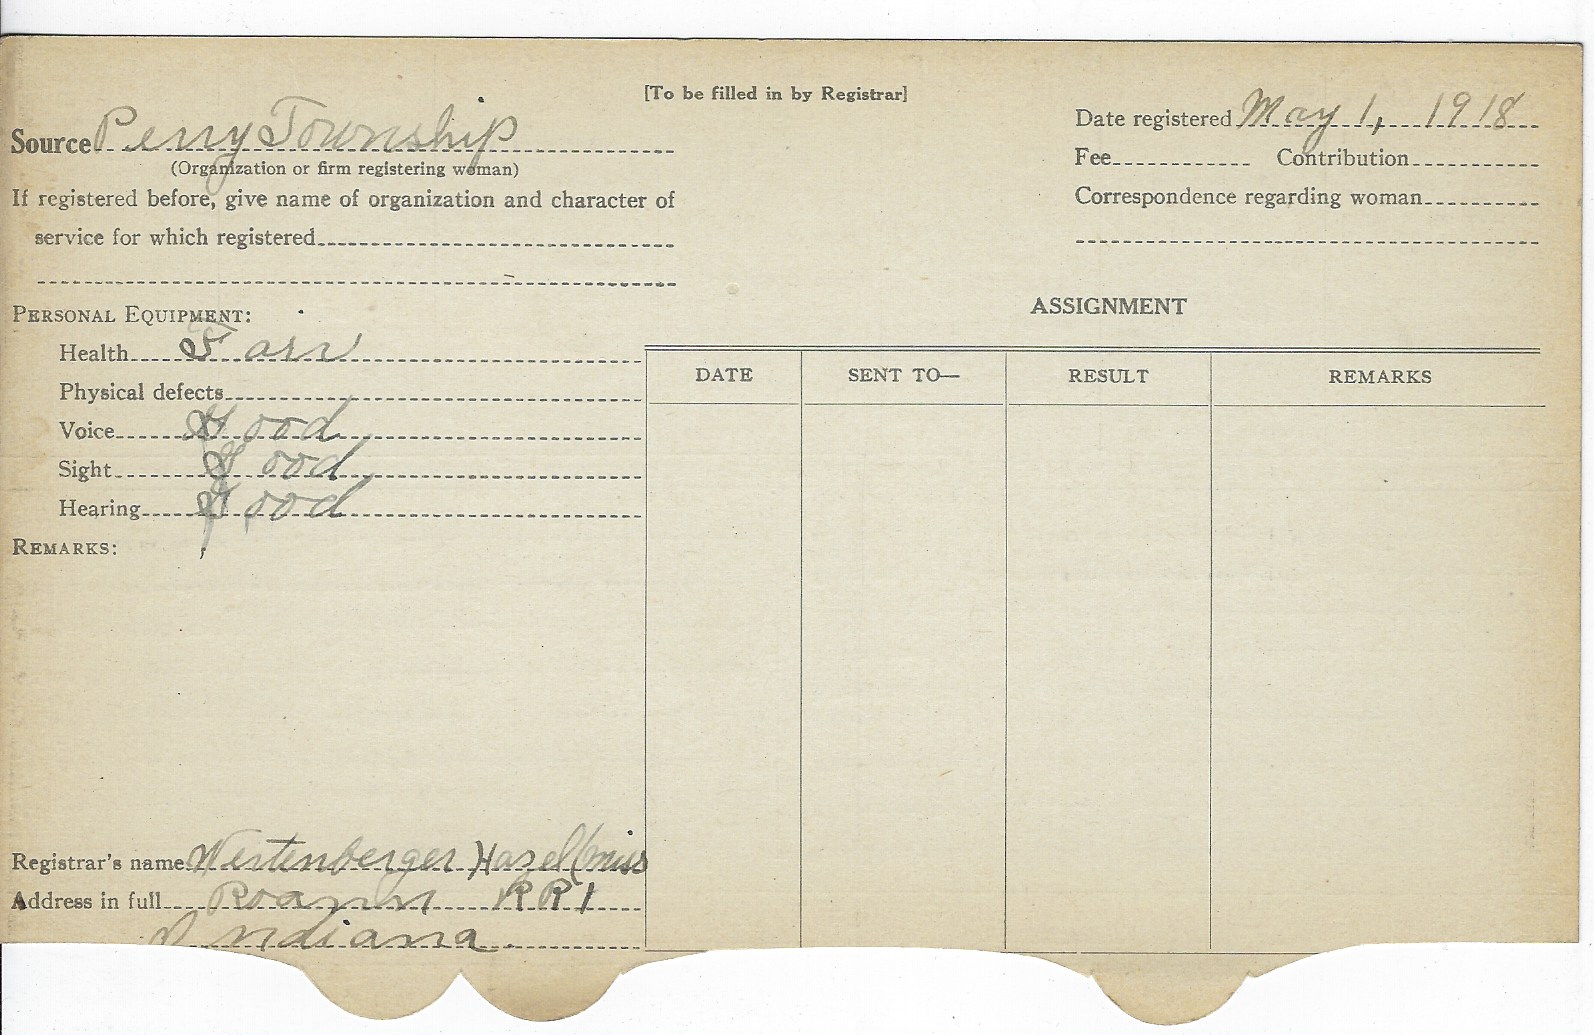 [To be filled in by Registrar]
Source Perry Township
(Organization or firm registering woman)
If registered before, give name of organization and character of
service for which registered
Date registered May 1, 1918
Fee Contribution
Correspondence regarding woman
PERSONAL EQUIPMENT:
Health Fair
Physical defects
Voice Good
Sight Good
Hearing Good
REMARKS:
ASSIGNMENT
DATE SENT TO— RESULT REMARKS
Registrar's name Westenberger Hazel (miss
Address in full Roann RR1
Indiana.